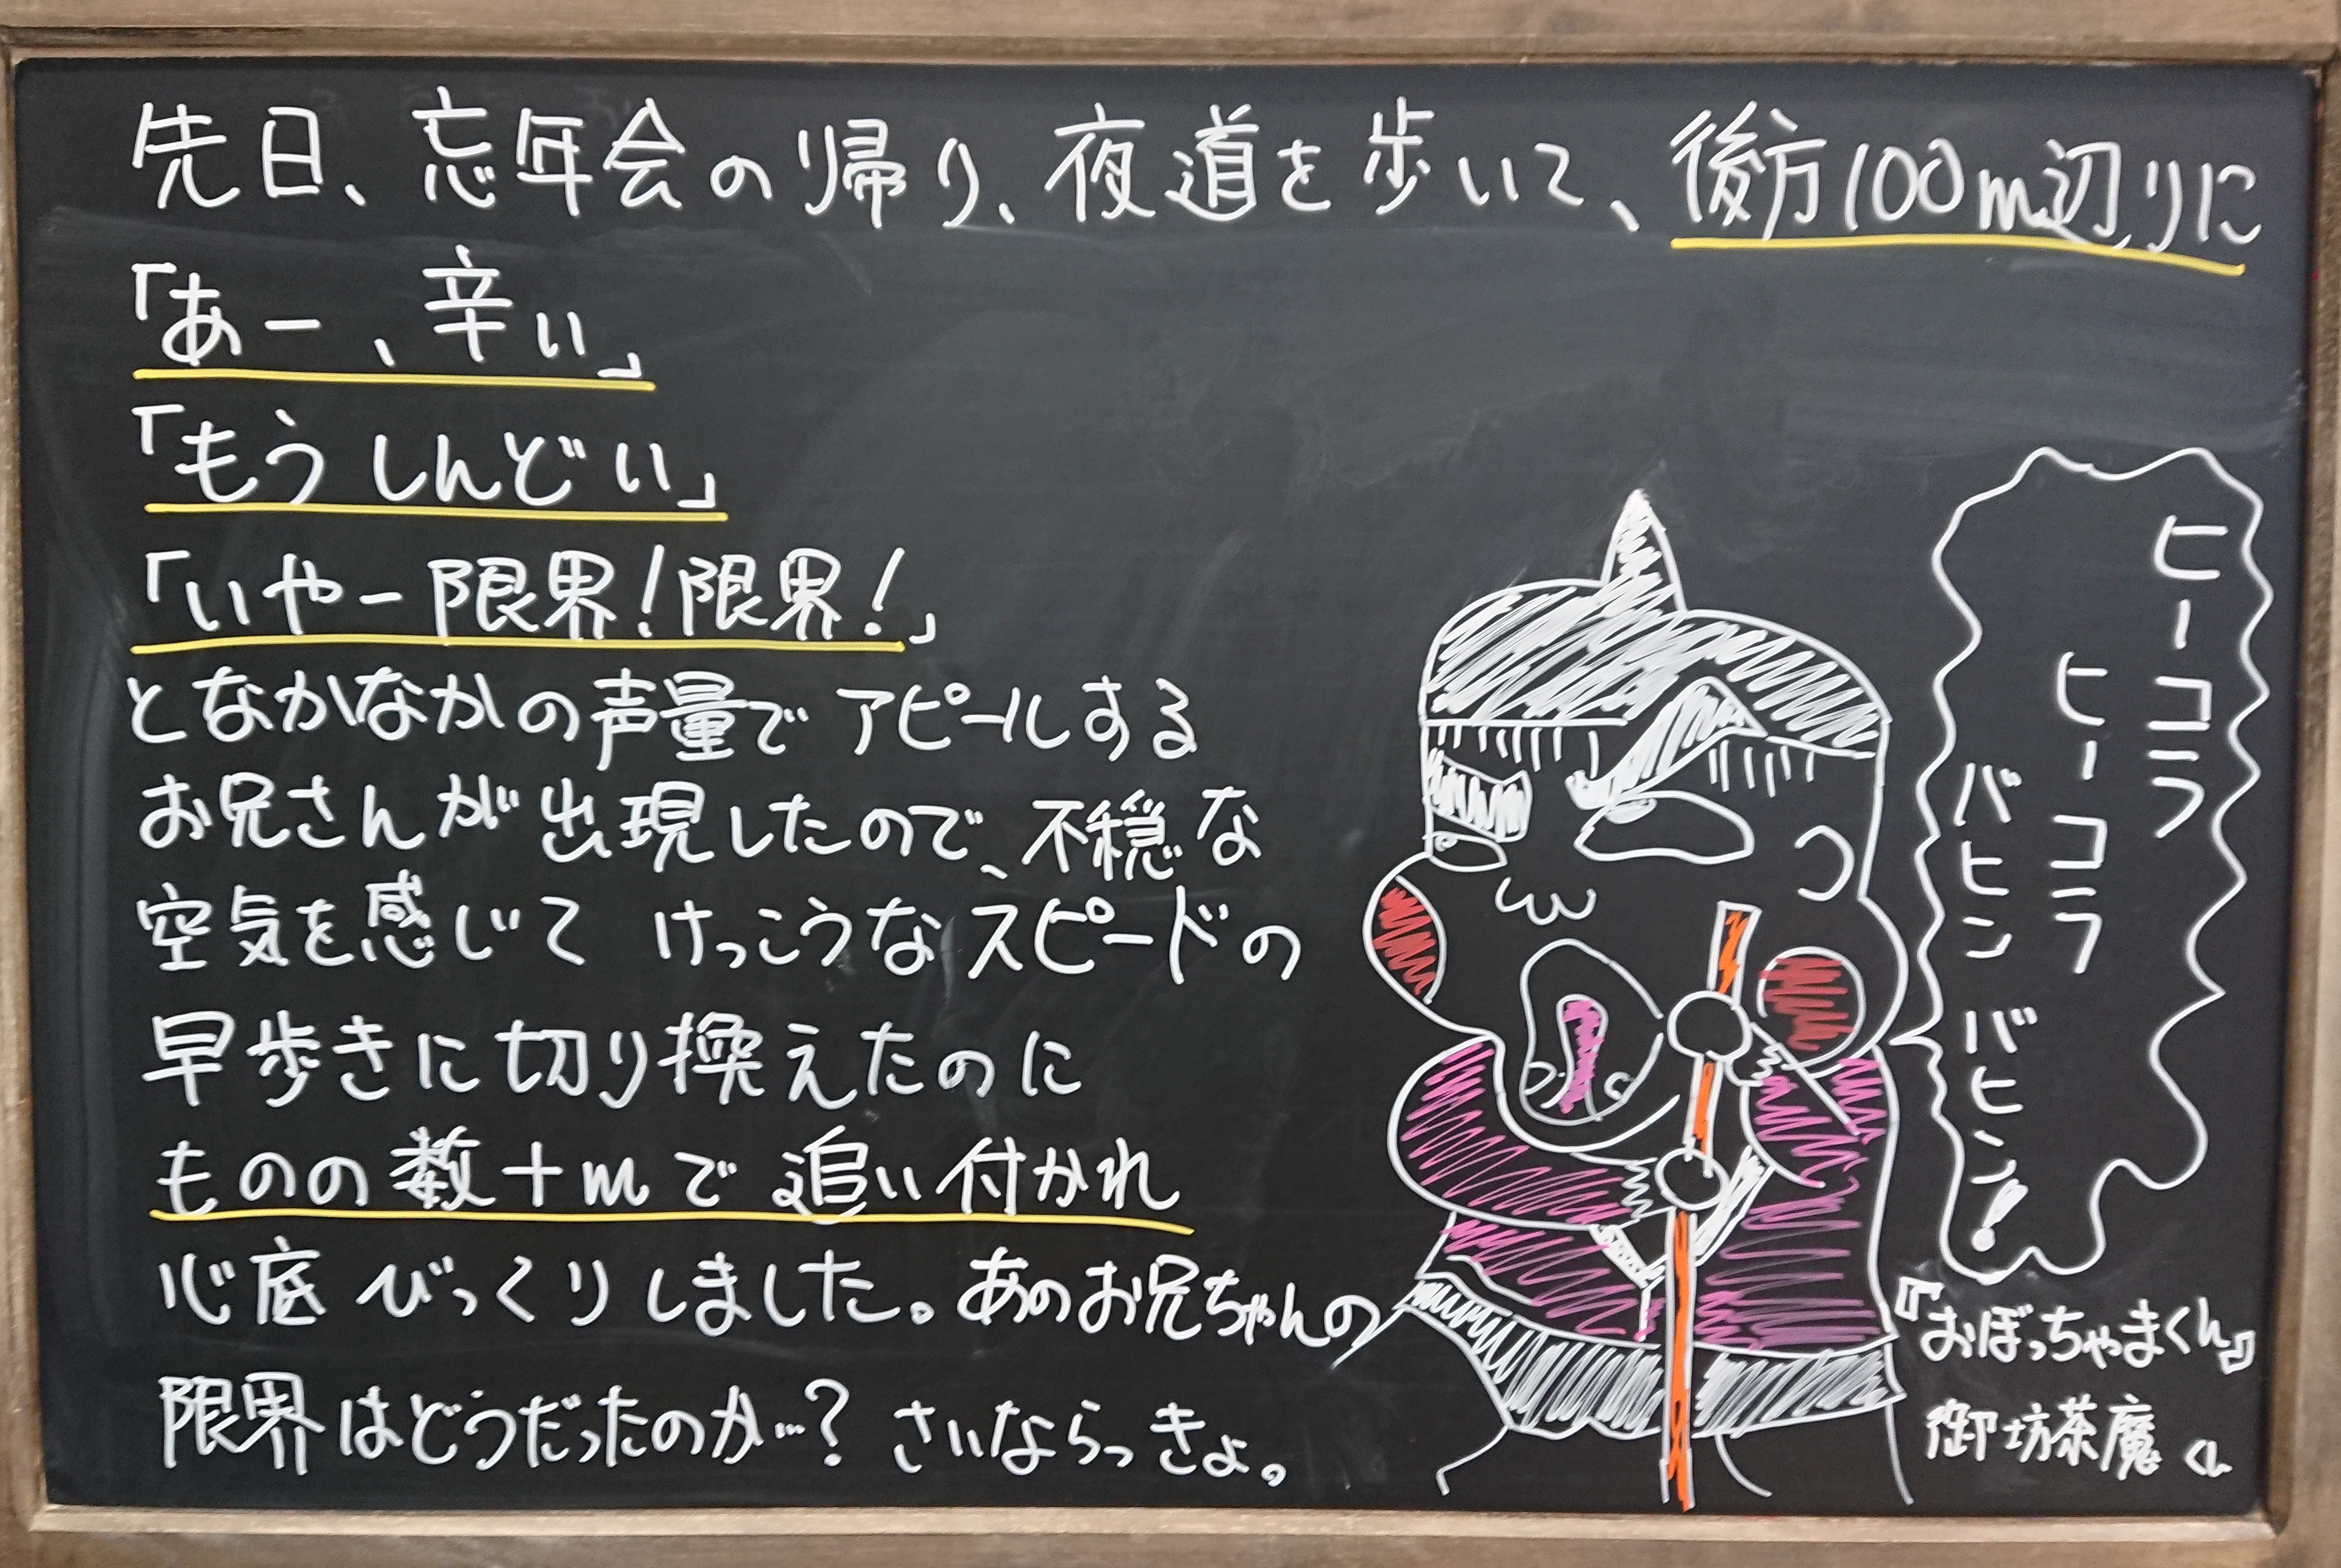 先日、忘年会の帰り、夜道を歩いて、後方100m辺りに
「あー、辛い」
「もうしんどい」
「いやー限界!限界!」
となかなかの声量でアピールする
お兄さんが出現したので、不穏な
空気を感じて けっこうなスピードの
早歩きに切り換えたのに
ものの数十mで追い付かれ
心底びっくりしました。あのお兄ちゃんの
限界はどうだったのか…? さいならっきょ。
ヒーコラ
ヒーコラ
バヒン バヒン!
『おぼっちゃまくん』
御坊茶魔くん